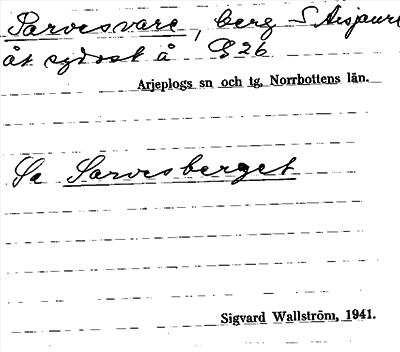 Sarvesvare, berg S Aisjaure
åt sydost å G 26
Arjeplogs sn och tg, Norrbottens län.
Se Sarvesberget
Sigvard Wallström, 1941.